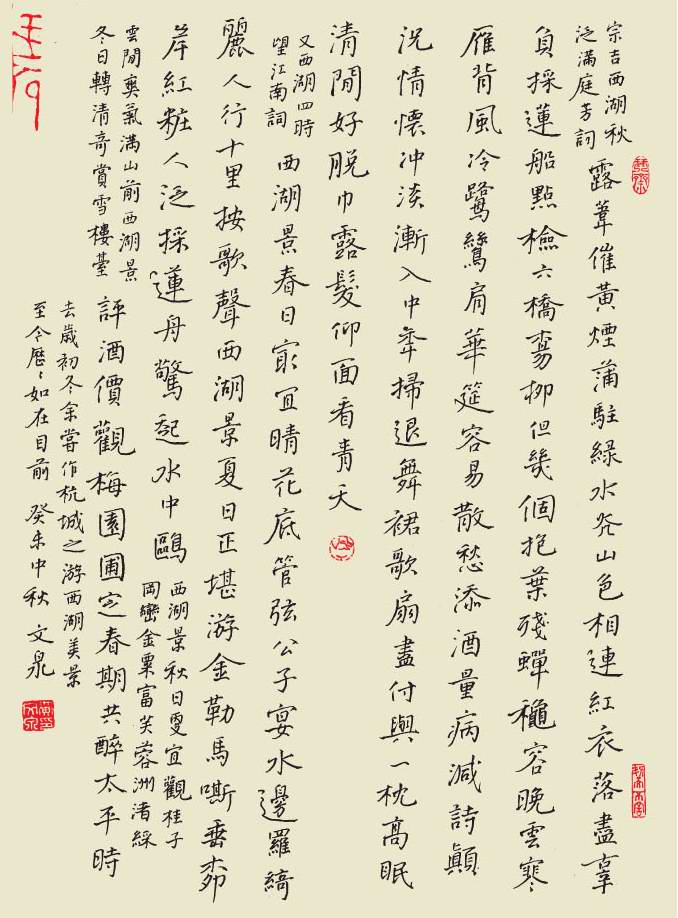 宗吉西湖秋
泛满庭芳詞
露葦催黄煙蒲駐緑水光山色相連紅衣落盡辜
負採蓮船點檢六橋楊柳但幾個抱葉殘蟬穐容晚雲寒
雁背風冷鷺鷥肩華筵容易散愁添酒量病減詩顛
況情懷冲淡漸入中年掃退舞裙歌扇盡付與一枕高眠
清閒好脱巾露髮仰面看青天
又西湖四時
望江南詞
西湖景春日最宜晴花底管弦公子宴水邊羅綺
麗人行十里按歌聲西湖景夏日正堪游金勒馬嘶垂柳
岸紅粧人泛採蓮舟驚起水中鷗
西湖景秋日更宜觀桂子
岡巒金粟富芙蓉洲渚綵
雲閒爽氣满山前西湖景
冬日轉清奇賞雪樓臺
評酒價觀梅園圃定春期共醉太平時
去歲初冬余嘗作杭城之游西湖美景
至今歷〻如在目前 癸未中秋 文泉